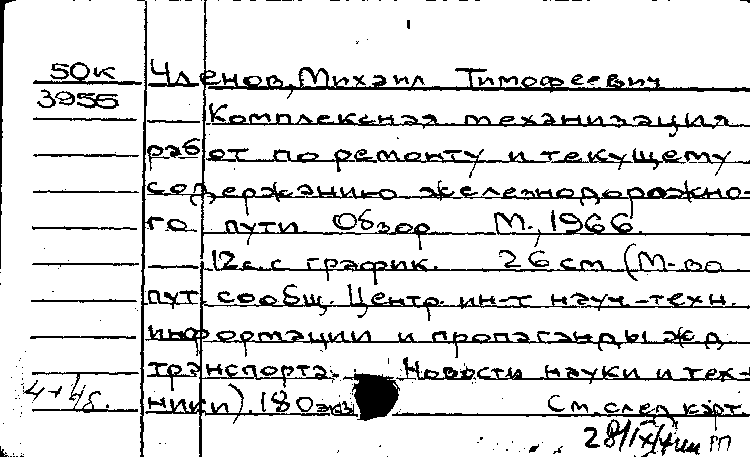 50к Членов, Михаил Тимофеевич
3955
Комплексная механизация
работ по ремонту и текущему
содержанию железнодорожно-
го пути. Обзор М., 1966.
12с. с график. 26 см (М-во
пут. сообщ. Центр. ин-т науч.-техн.
информации и пропаганды ж.д.
транспорта. Новости науки и тех-
ники). 180 экз.
См. след. карт.